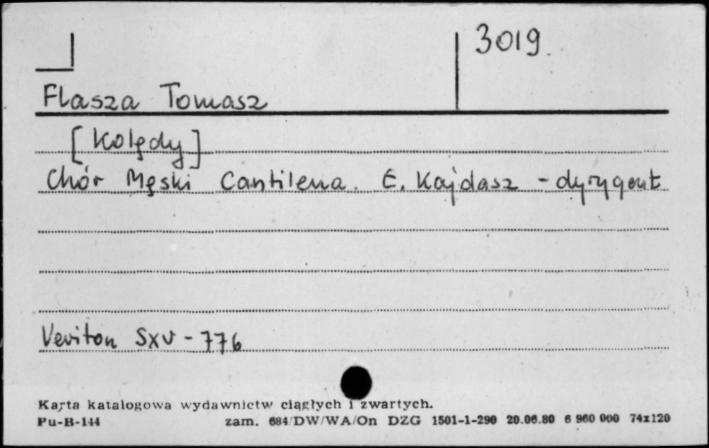 3019.
Flasza Tomasz
[Kolędy]
Chór Męski Cantilena. E. Kajdasz - dyrygent
Veriton SXV - 776
Karta katalogowa wydawnictw ciągłych i zwartych.
Pu-B-144 zam. 684/DW/WA/On DZG 1501-1-290 20.06.80 6 960 000 74x120